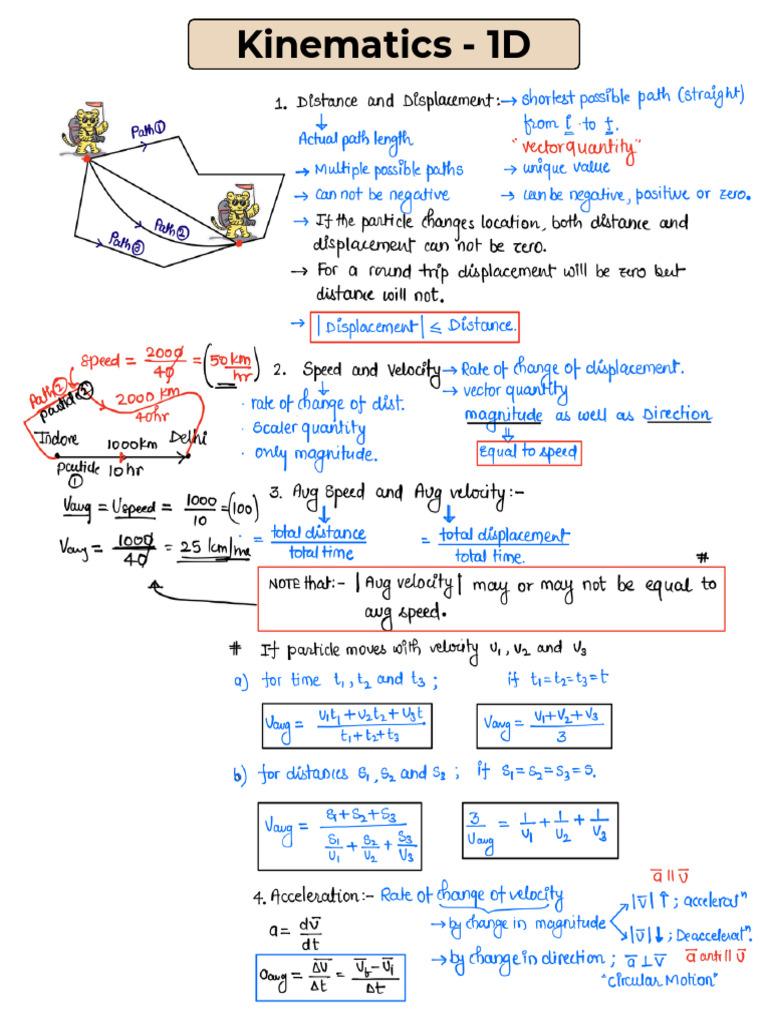 Kinematics - 1D
1. Distance and Displacement:- → shortest possible path (straight)
from i to f.
↓
Actual path length
"vector quantity"
→ Multiple possible paths → unique value
→ Can not be negative → can be negative, positive or zero.
→ If the particle changes location, both distance and
displacement can not be zero.
→ For a round trip displacement will be zero but
distance will not.
→ |Displacement| ≤ Distance.
Path ①
Path ②
Path ③
Speed = 2000/40 = (50 km/hr)
2. Speed and Velocity → Rate of change of displacement.
↓
→ vector quantity
· rate of change of dist.
magnitude as well as Direction
· Scaler quantity
⇓
· only magnitude.
Equal to speed
Path ②
particle ②
2000 km
40hr
Indore 1000km Delhi
particle ① 10 hr
Vavg = Uspeed = 1000/10 = (100)
Vavg = 1000/40 = 25 km/
3. Avg Speed and Avg velocity:-
= total distance/total time = total displacement/total time.
#
NOTE that:- |Avg velocity| may or may not be equal to
avg speed.
# If particle moves with velocity v₁, v₂ and v₃
a) for time t₁, t₂ and t₃ ; if t₁=t₂=t₃=t
Vavg = (v₁t₁+v₂t₂+v₃t)/(t₁+t₂+t₃) Vavg = (v₁+v₂+v₃)/3
b) for distances S₁, S₂ and S₃ ; if S₁=S₂=S₃=S.
Vavg = (S₁+S₂+S₃)/(S₁/v₁ + S₂/v₂ + S₃/v₃) 3/Vavg = 1/v₁ + 1/v₂ + 1/v₃
a⃗ || v⃗
4. Acceleration:- Rate of change of velocity
|v⃗| ↑ ; accelerat"
a = dv⃗/dt
→ by change in magnitude
|v⃗| ↓ ; Deaccelerat".
→ by change in direction ; a⃗ ⊥ v⃗ a⃗ anti || v⃗
"Circular Motion"
aavg = Δv⃗/Δt = (v⃗f − v⃗i)/Δt